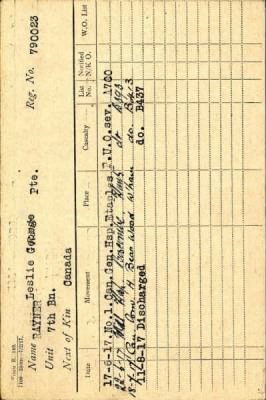 Name RAYNER Leslie George Pte. Reg. No. 790023
Unit 7th Bn.
Next of Kin Canada
Date Movement Place Casualty List No. Notified N.K.O. W.O. List
17-6-17. No.1. Can. Gen. Hsp. Etaples P.U.O. sev. 1700
22-6-17 do B393
18-7-17 Bear Wood Wokingham do B413
11-8-17 Discharged do. B437